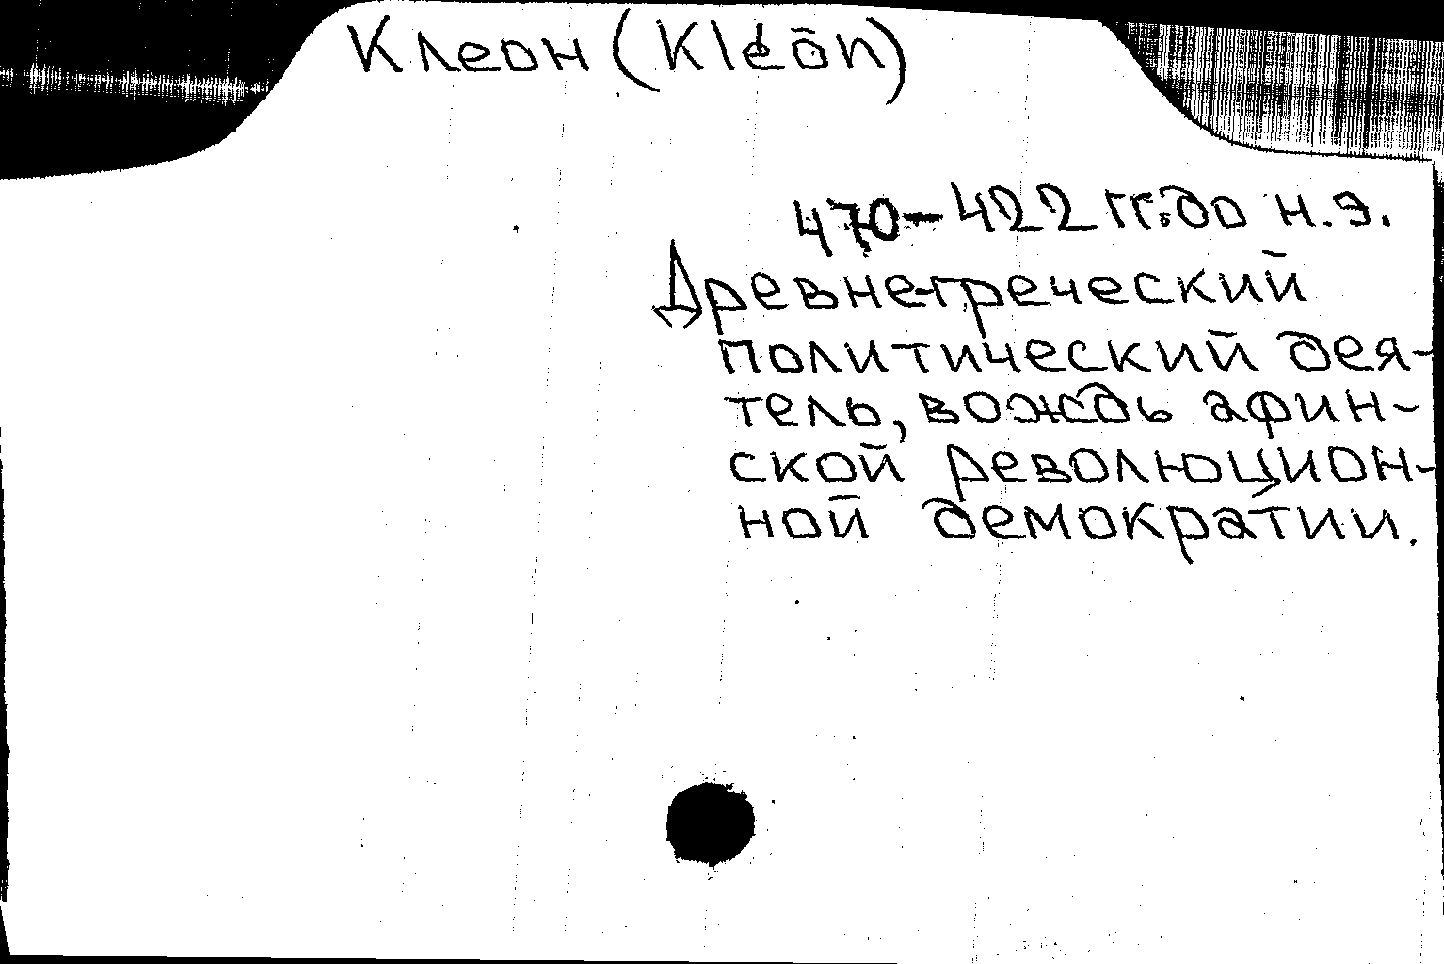 Клеон (Kléōn)
470-422 гг. до н.э.
Древнегреческий
политический дея-
тель, вождь афин-
ской революцион-
ной демократии.